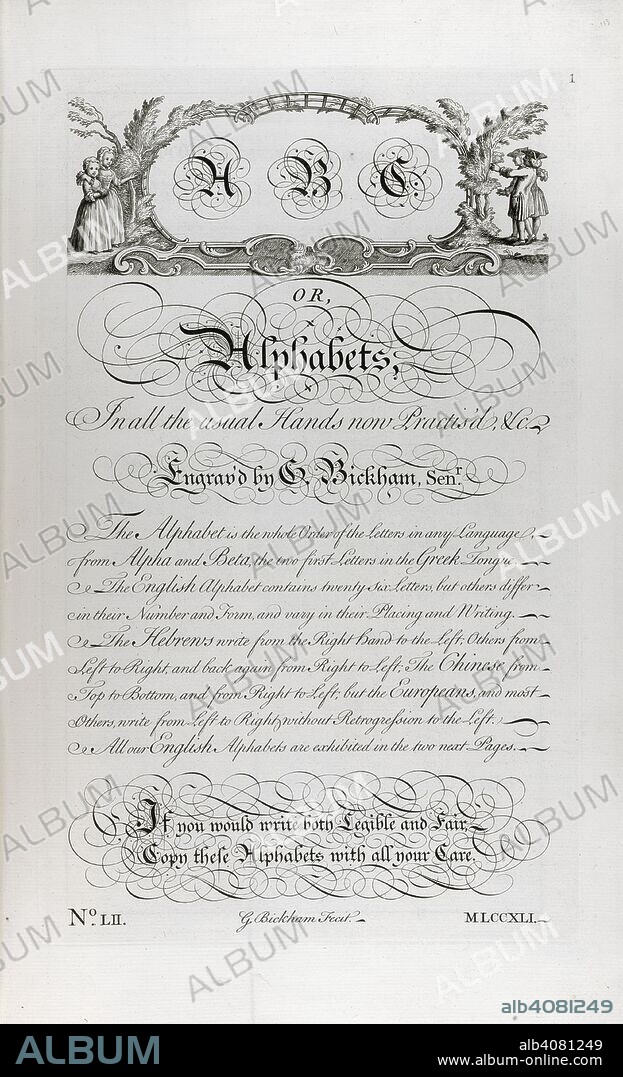 1
A B C
OR,
Alphabets,
In all the usual Hands now Practis'd, &c.
Engrav'd by G. Bickham, Senr.
The Alphabet is the whole Order of the Letters in any Language,
from Alpha and Beta, the two first Letters in the Greek Tongue.
The English Alphabet contains twenty Six Letters, but others differ
in their Number and Form, and vary in their Placing and Writing.
The Hebrews write from the Right Hand to the Left; Others from
Left to Right, and back again from Right to Left; The Chinese from
Top to Bottom, and from Right to Left; but the Europeans, and most
Others, write from Left to Right, without Retrogression to the Left.
All our English Alphabets are exhibited in the two next Pages.
If you would write both Legible and Fair,
Copy these Alphabets with all your Care.
No. LII. G. Bickham Fecit. MLCCXLI.
alb4081249
ALBUM
alb4081249
www.album-online.com